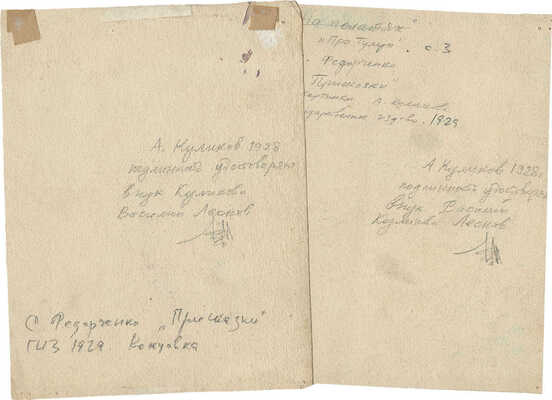 А. Куликов 1928
подлинность удостоверяю
внук Куликова
Василий Леонов
С Федорченко „Присказки"
ГИЗ 1929. Концовка
на полатях"
„Про Тулуп". с. 3
. Федорченко
Присказки"
картинки А. Куликов.
издво. 1929
А Куликов 1928г
подлинность удостоверяю
внук Василий
Куликова Леонов